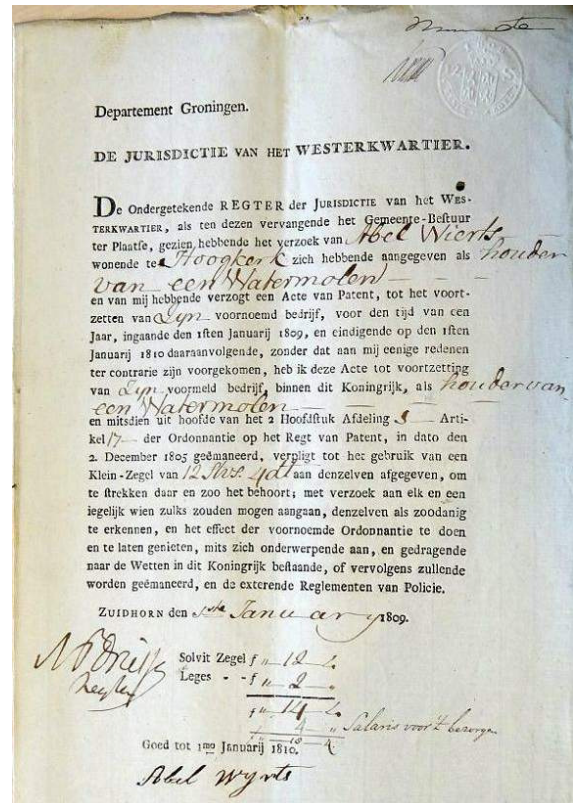 Departement Groningen.
DE JURISDICTIE VAN HET WESTERKWARTIER.
De Ondergetekende REGTER der JURISDICTIE van het WES-
TERKWARTIER, als ten dezen vervangende het Gemeente-Bestuur
ter Plaatse, gezien hebbende het verzoek van Abel Wierts
wonende te Hoogkerk zich hebbende aangegeven als houder
van een Watermolen
en van mij hebbende verzogt een Acte van Patent, tot het voort-
zetten van Zyn voornoemd bedrijf, voor den tijd van een
Jaar, ingaande den 1sten Januarij 1809, en eindigende op den 1sten
Januarij 1810 daaraanvolgende, zonder dat aan mij eenige redenen
ter contrarie zijn voorgekomen, heb ik deze Acte tot voortzetting
van Zyn voormeld bedrijf, binnen dit Koningrijk, als houder van
een Watermolen
en mitsdien uit hoofde van het 2 Hoofdstuk Afdeling 3 Arti-
kel 17 der Ordonnantie op het Regt van Patent, in dato den
2. December 1805 geëmaneerd, verpligt tot het gebruik van een
Klein-Zegel van 12 Stvs. 4 dt aan denzelven afgegeven, om
te strekken daar en zoo het behoort; met verzoek aan elk en een
iegelijk wien zulks zouden mogen aangaan, denzelven als zoodanig
te erkennen, en het effect der voornoemde Ordonnantie te doen
en te laten genieten, mits zich onderwerpende aan, en gedragende
naar de Wetten in dit Koningrijk bestaande, of vervolgens zullende
worden geëmaneerd, en de exterende Reglementen van Policie.
ZUIDHORN den 1ste January 1809.
Solvit Zegel f „ 12
Leges - - f „ 2
f „ 14
4 Salaris voor 't bezorgen
Goed tot 1mo Januarij 1810.
Abel Wyrts